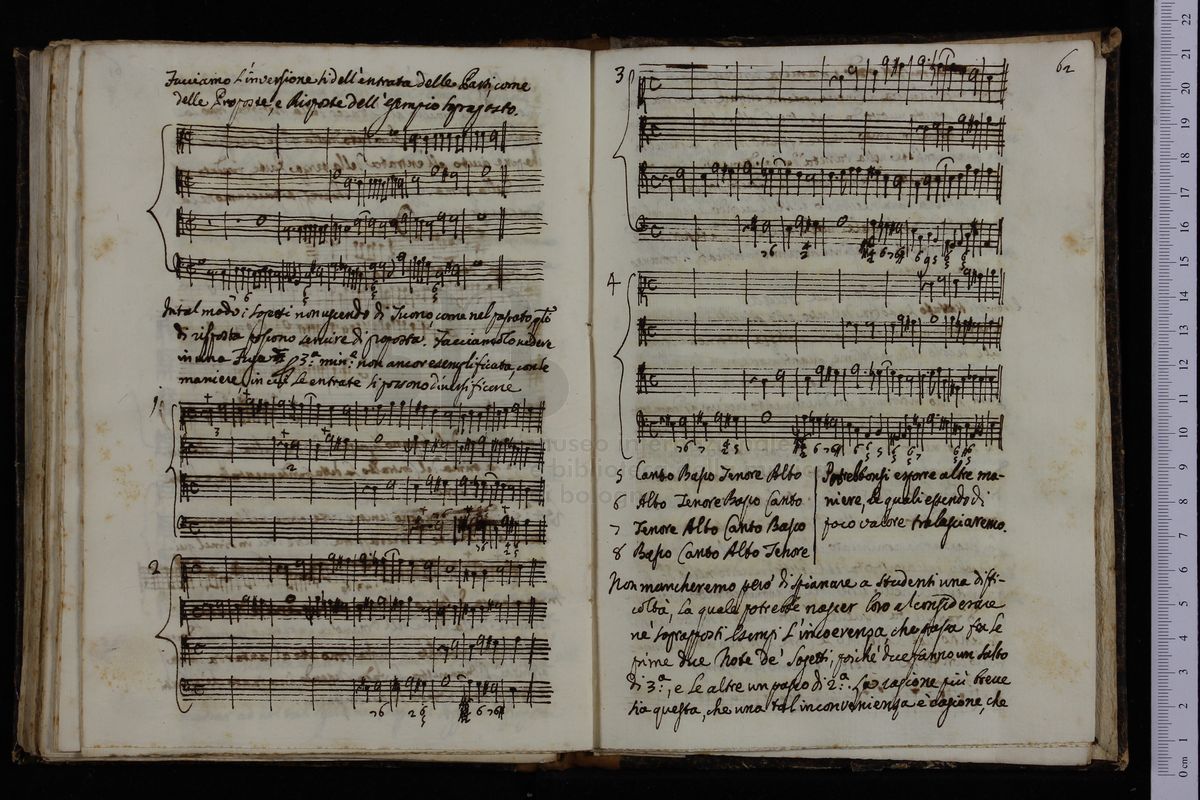 Facciamo l'inversione sì dell'entrata delle Parti, come
delle Proposte, e Risposte dell'esempio sopraposto.
In tal modo i sogetti non uscendo di Tuono, come nel passato
di risposta possono servire di proposta. Facciamolo vedere
in una Fuga 3.ª min.e non ancor esemplificata, con le
maniere, in cui le entrate si possono diversificare
1
2
62
3
4
5 Canto Basso Tenore Alto
6 Alto Tenore Basso Canto
7 Tenore Alto Canto Basso
8 Basso Canto Alto Tenore
Potrebbonsi esporre altre ma-
niere, le quali essendo di
poco valore tralasciaremo.
Non mancheremo però di spianare a Studenti una diffi-
coltà, la quale potrebbe nascer loro al considerare
ne' soprapposti Esempi l'incoerenza, che passa fra le
prime due Note de' Sogetti, poiché due fanno un salto
di 3.ª, e le altre un passo di 2.ª. La ragione più breve
sia questa, che una tal inconvenienza è cagione, che
museo internazionale
biblioteca
bologna